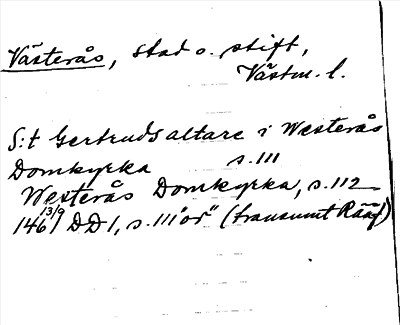 Västerås, stad o. stift,
Västm. l.
S:t Gertruds altare i Westerås
Domkyrka s. 111
Westerås Domkyrka, s. 112
13/9
1461 DD1, s. 111 "or" (transumt Rääf)